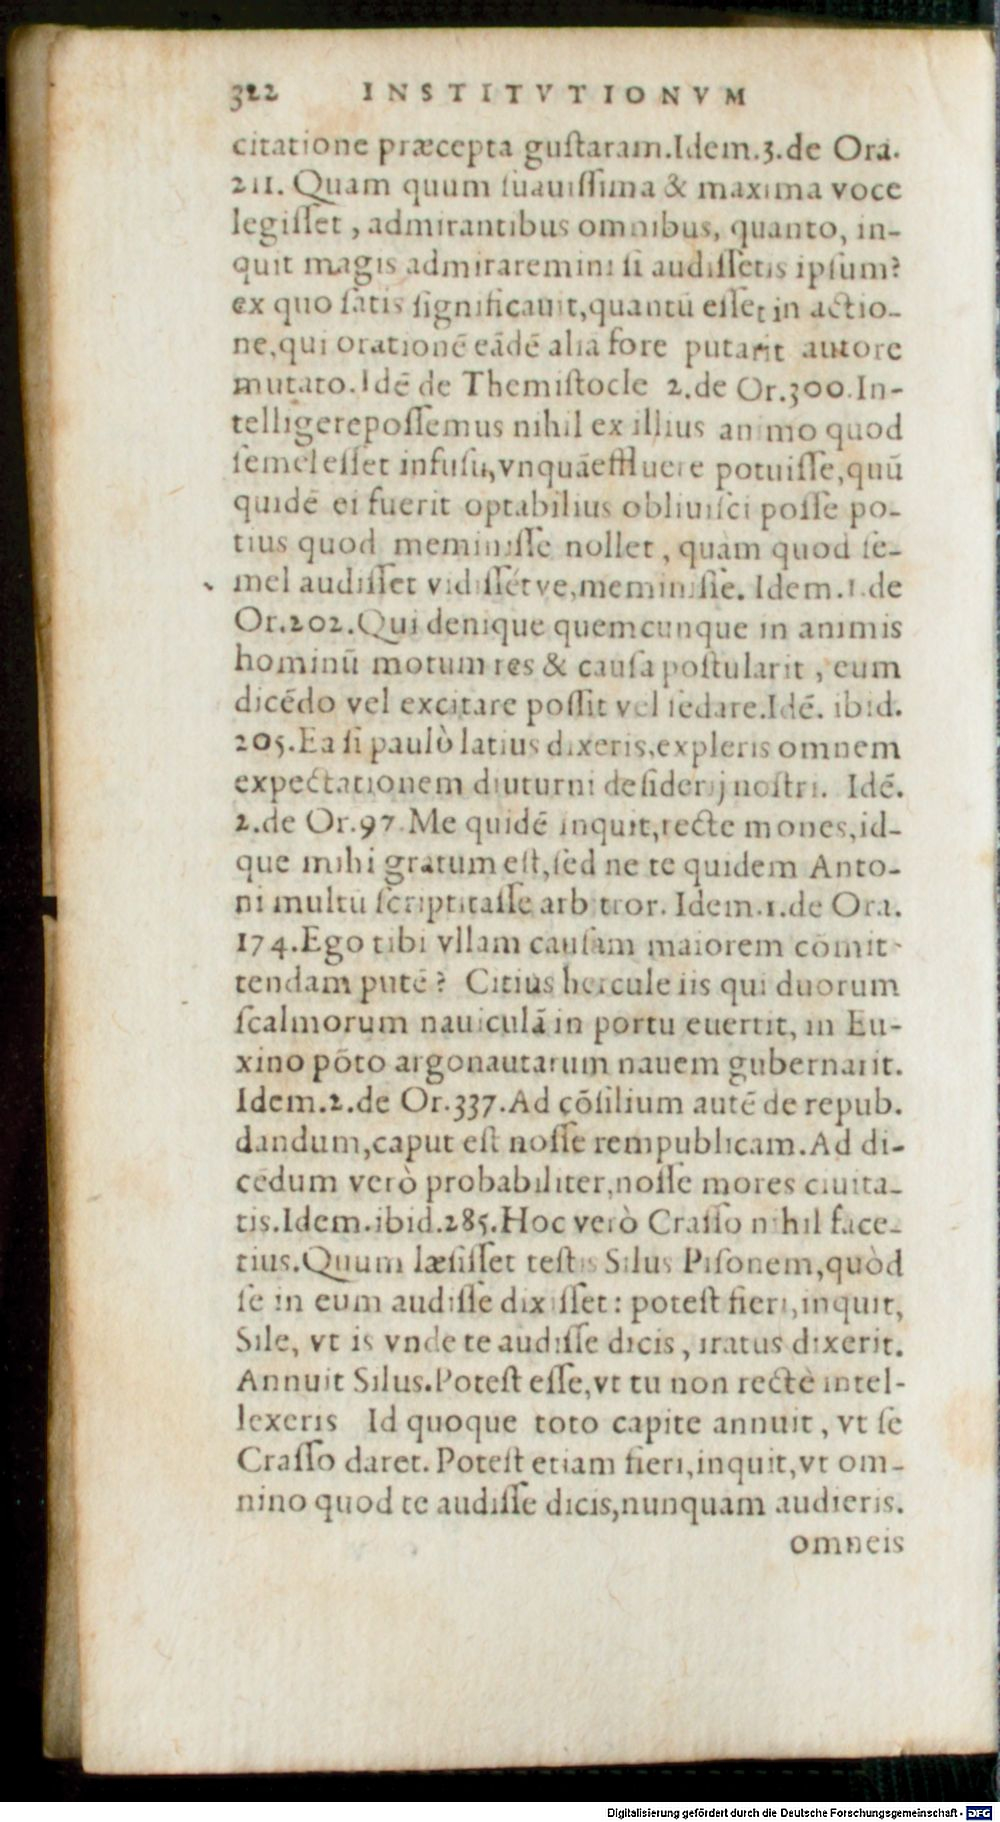 322 INSTITVTIONVM
citatione præcepta gustaram.Idem.3.de Ora.
211. Quam quum suauissima & maxima voce
legisset, admirantibus omnibus, quanto, in-
quit magis admiraremini si audissetis ipsum?
ex quo satis significauit,quantū esset in actio-
ne,qui orationē eādē alia fore putarit autore
mutato.Idē de Themistocle 2.de Or.300.In-
telligerepossemus nihil ex illius animo quod
semel esset infusū,vnquāeffluere potuisse,quū
quidē ei fuerit optabilius obliuisci posse po-
tius quod meminisse nollet, quam quod se-
mel audisset vidissétve,meminisse. Idem.1.de
Or.202.Qui denique quemcunque in animis
hominū motum res & causa postularit, eum
dicēdo vel excitare possit vel sedare.Idē. ibid.
205.Ea si paulò latius dixeris,expleris omnem
expectationem diuturni desiderij nostri. Idē.
2.de Or.97.Me quidē inquit,recte mones,id-
que mihi gratum est,sed ne te quidem Anto-
ni multū scriptitasse arbitror. Idem.1.de Ora.
174.Ego tibi vllam causam maiorem cōmit-
tendam putē? Citius hercule iis qui duorum
scalmorum nauiculā in portu euertit, in Eu-
xino pōto argonautarum nauem gubernarit.
Idem.2.de Or.337.Ad cōsilium autē de repub.
dandum,caput est nosse rempublicam.Ad di-
cēdum verò probabiliter,nosse mores ciuita-
tis.Idem.ibid.285.Hoc verò Crasso nihil face-
tius.Quum læsisset testis Silus Pisonem,quòd
se in eum audisse dixisset: potest fieri,inquit,
Sile, vt is vnde te audisse dicis, iratus dixerit.
Annuit Silus.Potest esse,vt tu non rectè intel-
lexeris Id quoque toto capite annuit, vt se
Crasso daret. Potest etiam fieri,inquit,vt om-
nino quod te audisse dicis,nunquam audieris.
omneis
Digitalisierung gefördert durch die Deutsche Forschungsgemeinschaft - DFG